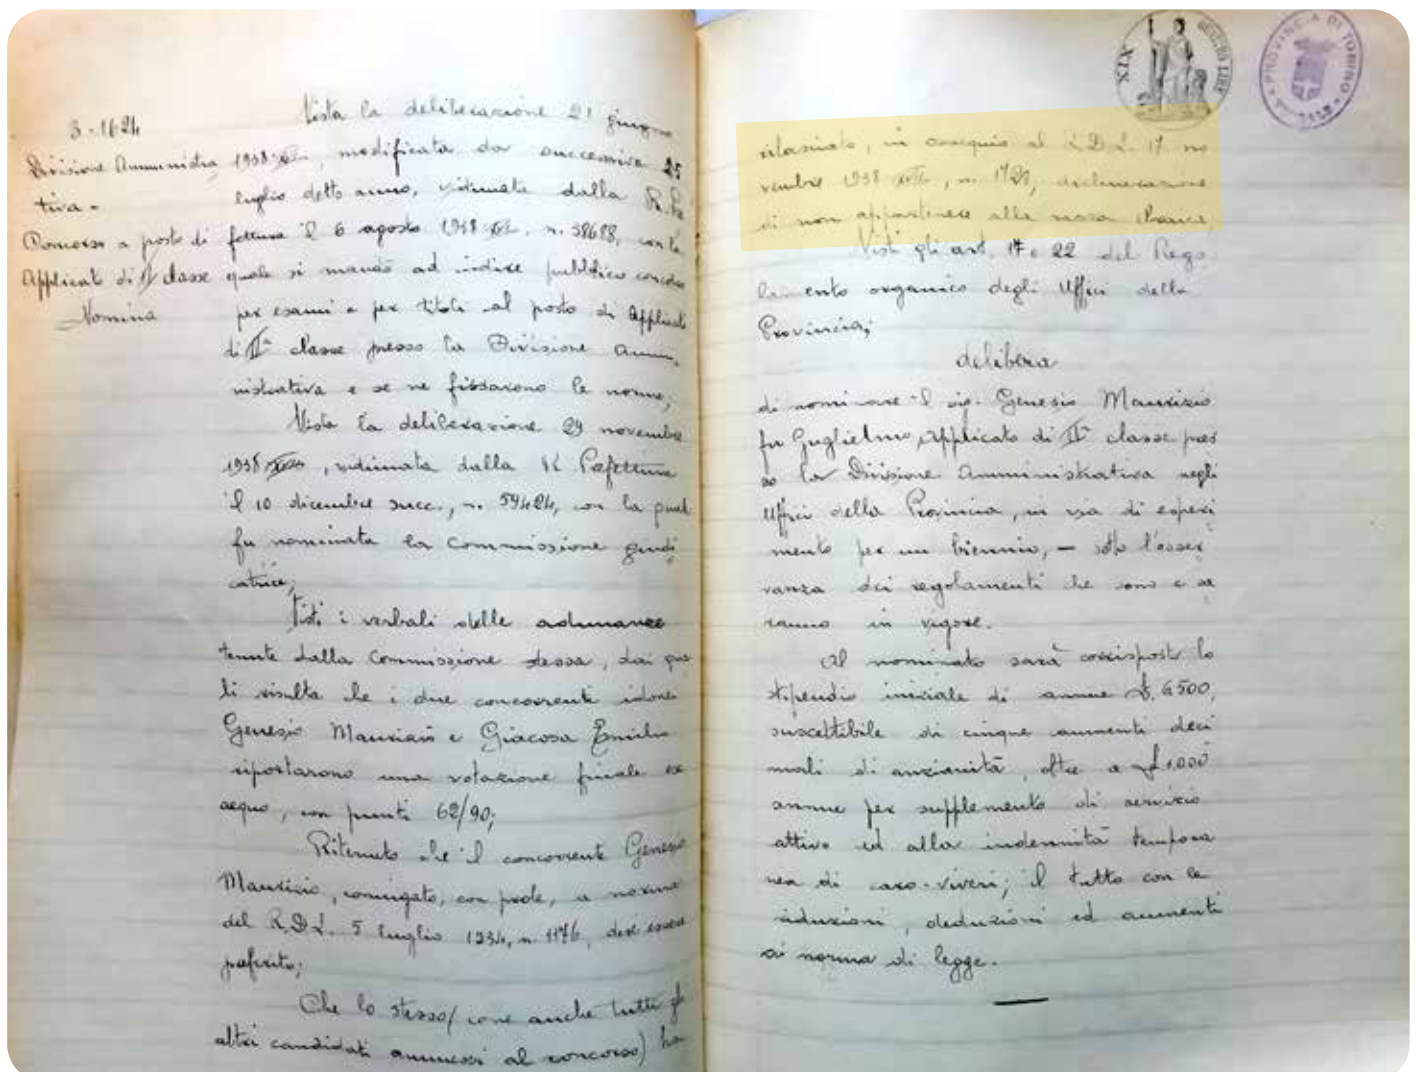 3-1624
Divisione Amministra
tiva -
Concorso a posto di
Applicato di II classe
Nomina
Vista la deliberazione 21 giugno
1938 XVI, modificata da successiva 25
luglio detto anno, vidimata dalla R. Pre
fettura il 6 agosto 1938 XVI, n. 38688, con la
quale si mandò ad indire pubblico concorso
per esami e per titoli al posto di Applicato
di IIª classe presso la Divisione Ammi
nistrativa e se ne fissarono le norme;
Vista la deliberazione 29 novembre
1938 XVII, vidimata dalla R. Prefettura
il 10 dicembre succ., n. 59424, con la quale
fu nominata la Commissione giudi
catrice;
Visti i verbali delle adunanze
tenute dalla Commissione stessa, dai qua
li risulta che i due concorrenti idonei
Genesio Maurizio e Giacosa Emilio
riportarono una votazione finale ex
aequo, con punti 62/90;
Ritenuto che il concorrente Genesio
Maurizio, coniugato, con prole, a norma
del R.D.L. 5 luglio 1934, n. 1176, deve essere
preferito;
Che lo stesso (come anche tutti gli
altri candidati ammessi al concorso) ha
XIX
PROVINCIA DI TORINO
rilasciato, in ossequio al R.D.L. 17 no
vembre 1938 XVII, n. 1728, dichiarazione
di non appartenere alla razza ebraica;
Visti gli art. 17 e 22 del Rego
lamento organico degli Uffici della
Provincia;
delibera
di nominare il sig. Genesio Maurizio
fu Guglielmo, Applicato di IIª classe pres
so la Divisione Amministrativa negli
Uffici della Provincia, in via di esperi
mento per un biennio, - sotto l'osser
vanza dei regolamenti che sono e sa
ranno in vigore.
Al nominato sarà corrisposto lo
stipendio iniziale di annue £. 6500,
suscettibile di cinque aumenti deci
mali di anzianità, oltre a £ 1.000
annue per supplemento di servizio
attivo ed alla indennità tempora
nea di caro-viveri; il tutto con le
riduzioni, deduzioni ed aumenti
a norma di legge.